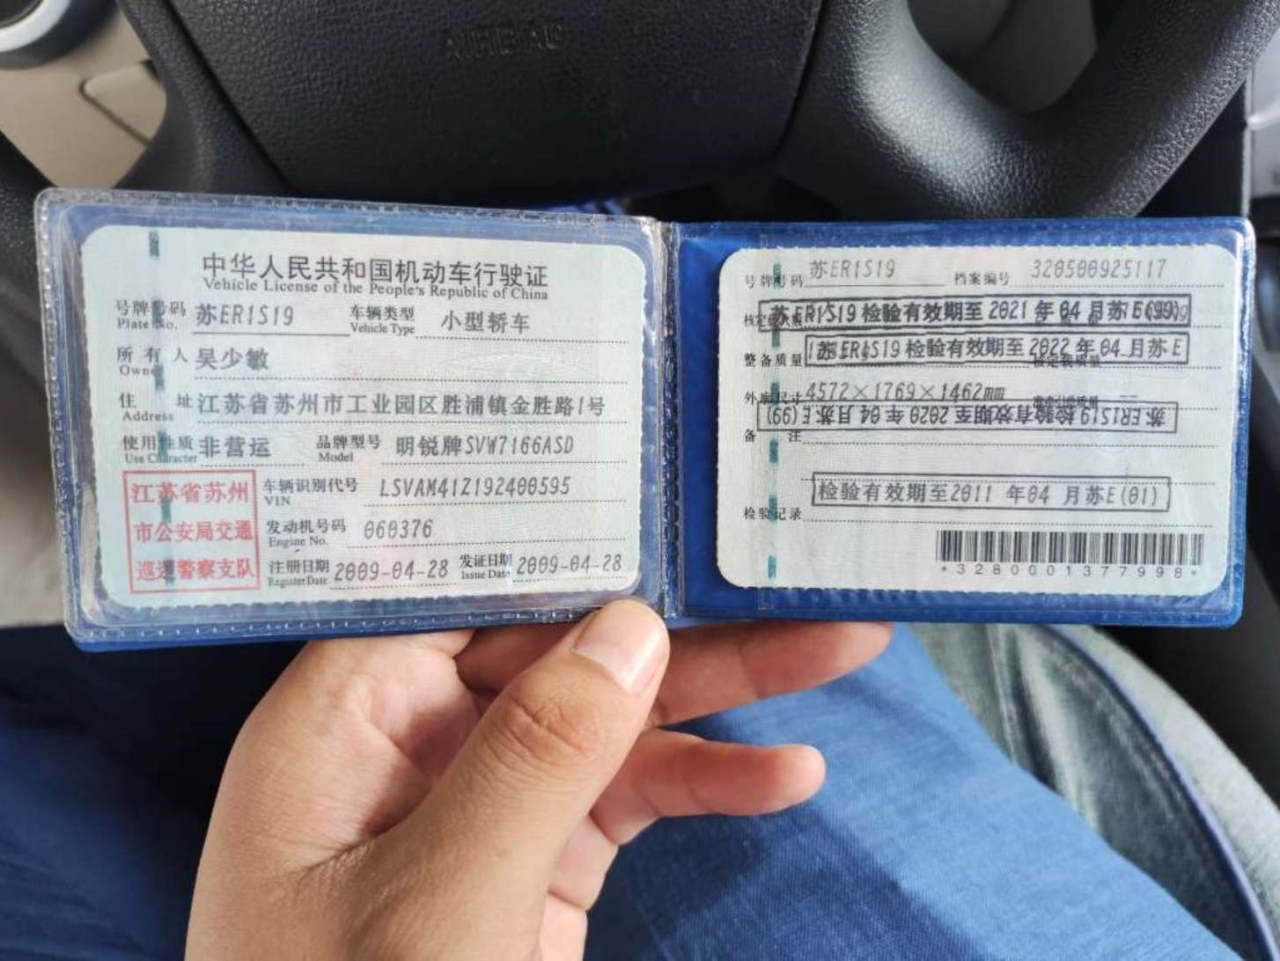 AIRBAG
中华人民共和国机动车行驶证
Vehicle License of the People's Republic of China
号牌号码 苏ER1S19 车辆类型 小型轿车
Plate No. Vehicle Type
所有人 吴少敏
Owner
住址 江苏省苏州市工业园区胜浦镇金胜路1号
Address
使用性质 非营运 品牌型号 明锐牌SVW7166ASD
Use Character Model
江苏省苏州
市公安局交通
巡逻警察支队
车辆识别代号 LSVAM41Z192400595
VIN
发动机号码 060376
Engine No.
注册日期 2009-04-28 发证日期 2009-04-28
Register Date Issue Date
号牌号码 苏ER1S19 档案编号 320500925117
苏ER1S19 检验有效期至 2021 年 04 月苏E(99)
整备质量 苏ER1S19 检验有效期至 2022 年 04 月苏E
外廓尺寸 4572×1769×1462mm
苏ER1S19 检验有效期至 2020 年 04 月苏E(99)
备注
检验有效期至2011 年04 月苏E(01)
检验记录
*3280001377998*